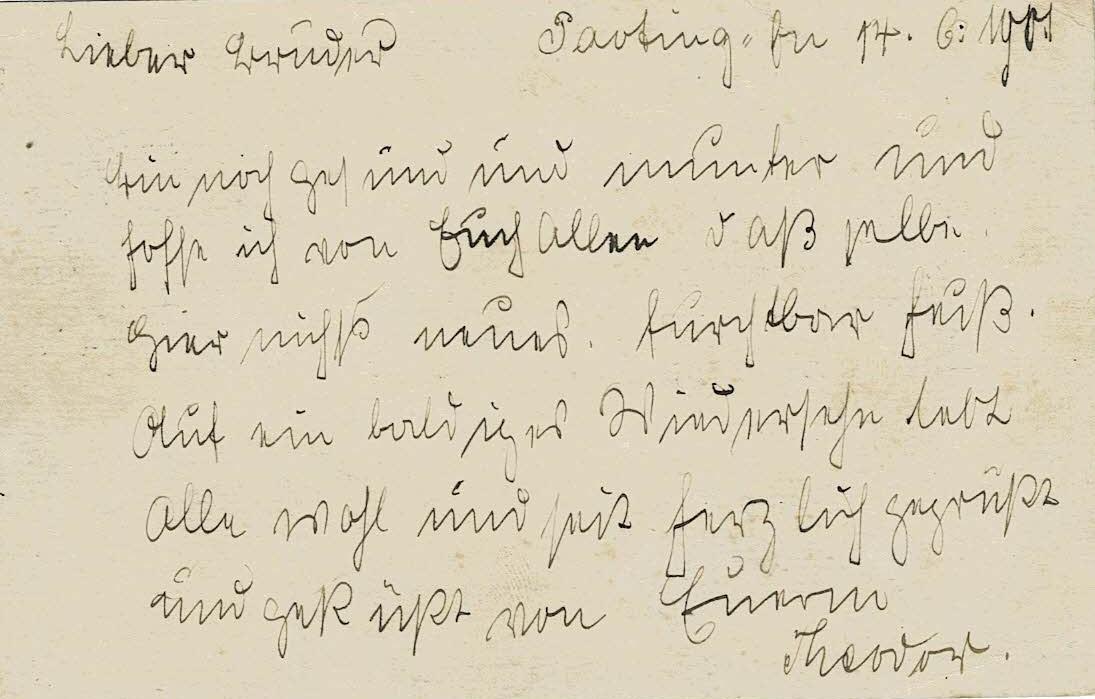 Lieber Bruder Paoting-fu 14. 6. 1901
Bin noch gesund und munter und
hoffe ich von Euch Allen daß selbe.
Hier nichts neues. furchtbar heiß.
Auf ein baldiges Wiedersehn lebt
Alle wohl und seit herzlich gegrüßt
und geküßt von Euerm
Theodor.